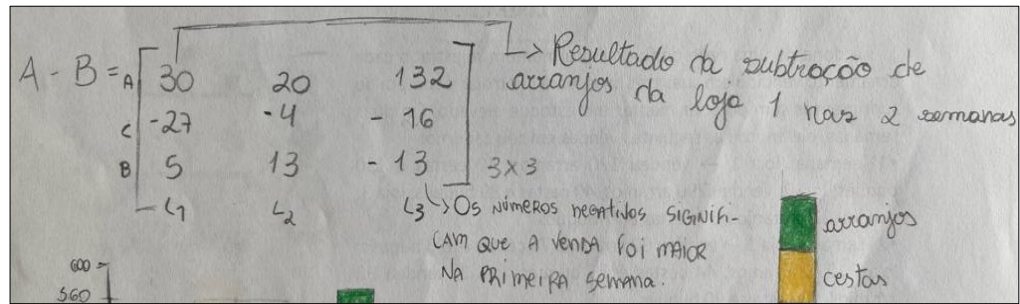 A - B = A 30 20 132
C -27 -4 - 16
B 5 13 - 13 3x3
L1 L2 L3
↳ Resultado da subtração de
arranjos da loja 1 nas 2 semanas
↳ Os números negativos signifi-
cam que a venda foi maior
na primeira semana.
arranjos
cestas
600
560